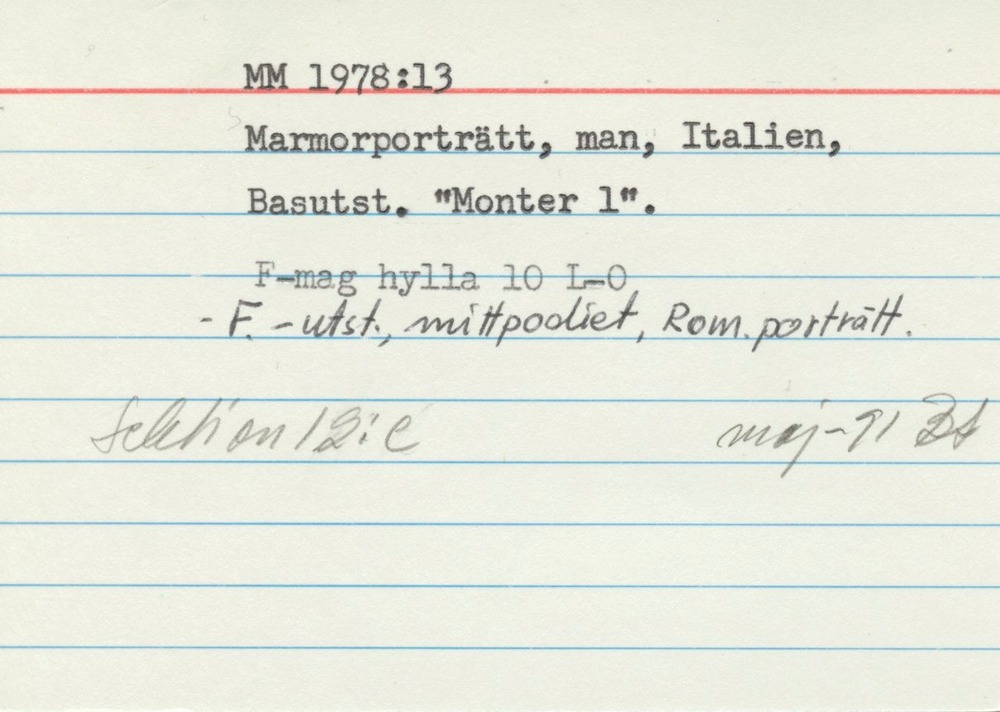 MM 1978:13
Marmorporträtt, man, Italien,
Basutst. "Monter 1".
F-mag hylla 10 L-O
- F. - utst., mittpodiet, Rom. porträtt.
Sektion 12:C maj-91